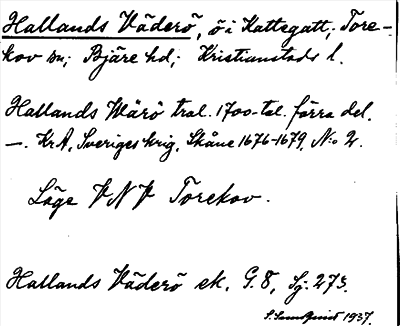 Hallands Väderö, ö i Kattegatt; Tore-
kov sn; Bjäre hd; Kristianstads l.
Hallands Wärö tral. 1700-tal. förra del.
—. KrA, Sveriges krig, Skåne 1676-1679, N:o 2.
Läge V N V Torekov.
Hallands Väderö ek. G. 8, Sg. 273.
1937.